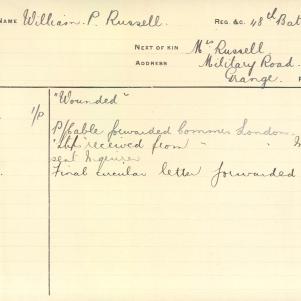 NAME William P. Russell. REG. &C. 48th Bat
NEXT OF KIN Mrs Russell
ADDRESS Military Road.
Grange.
1/P "Wounded"
P/pable forwarded Commrs London.
received from "
sent
Final circular letter forwarded